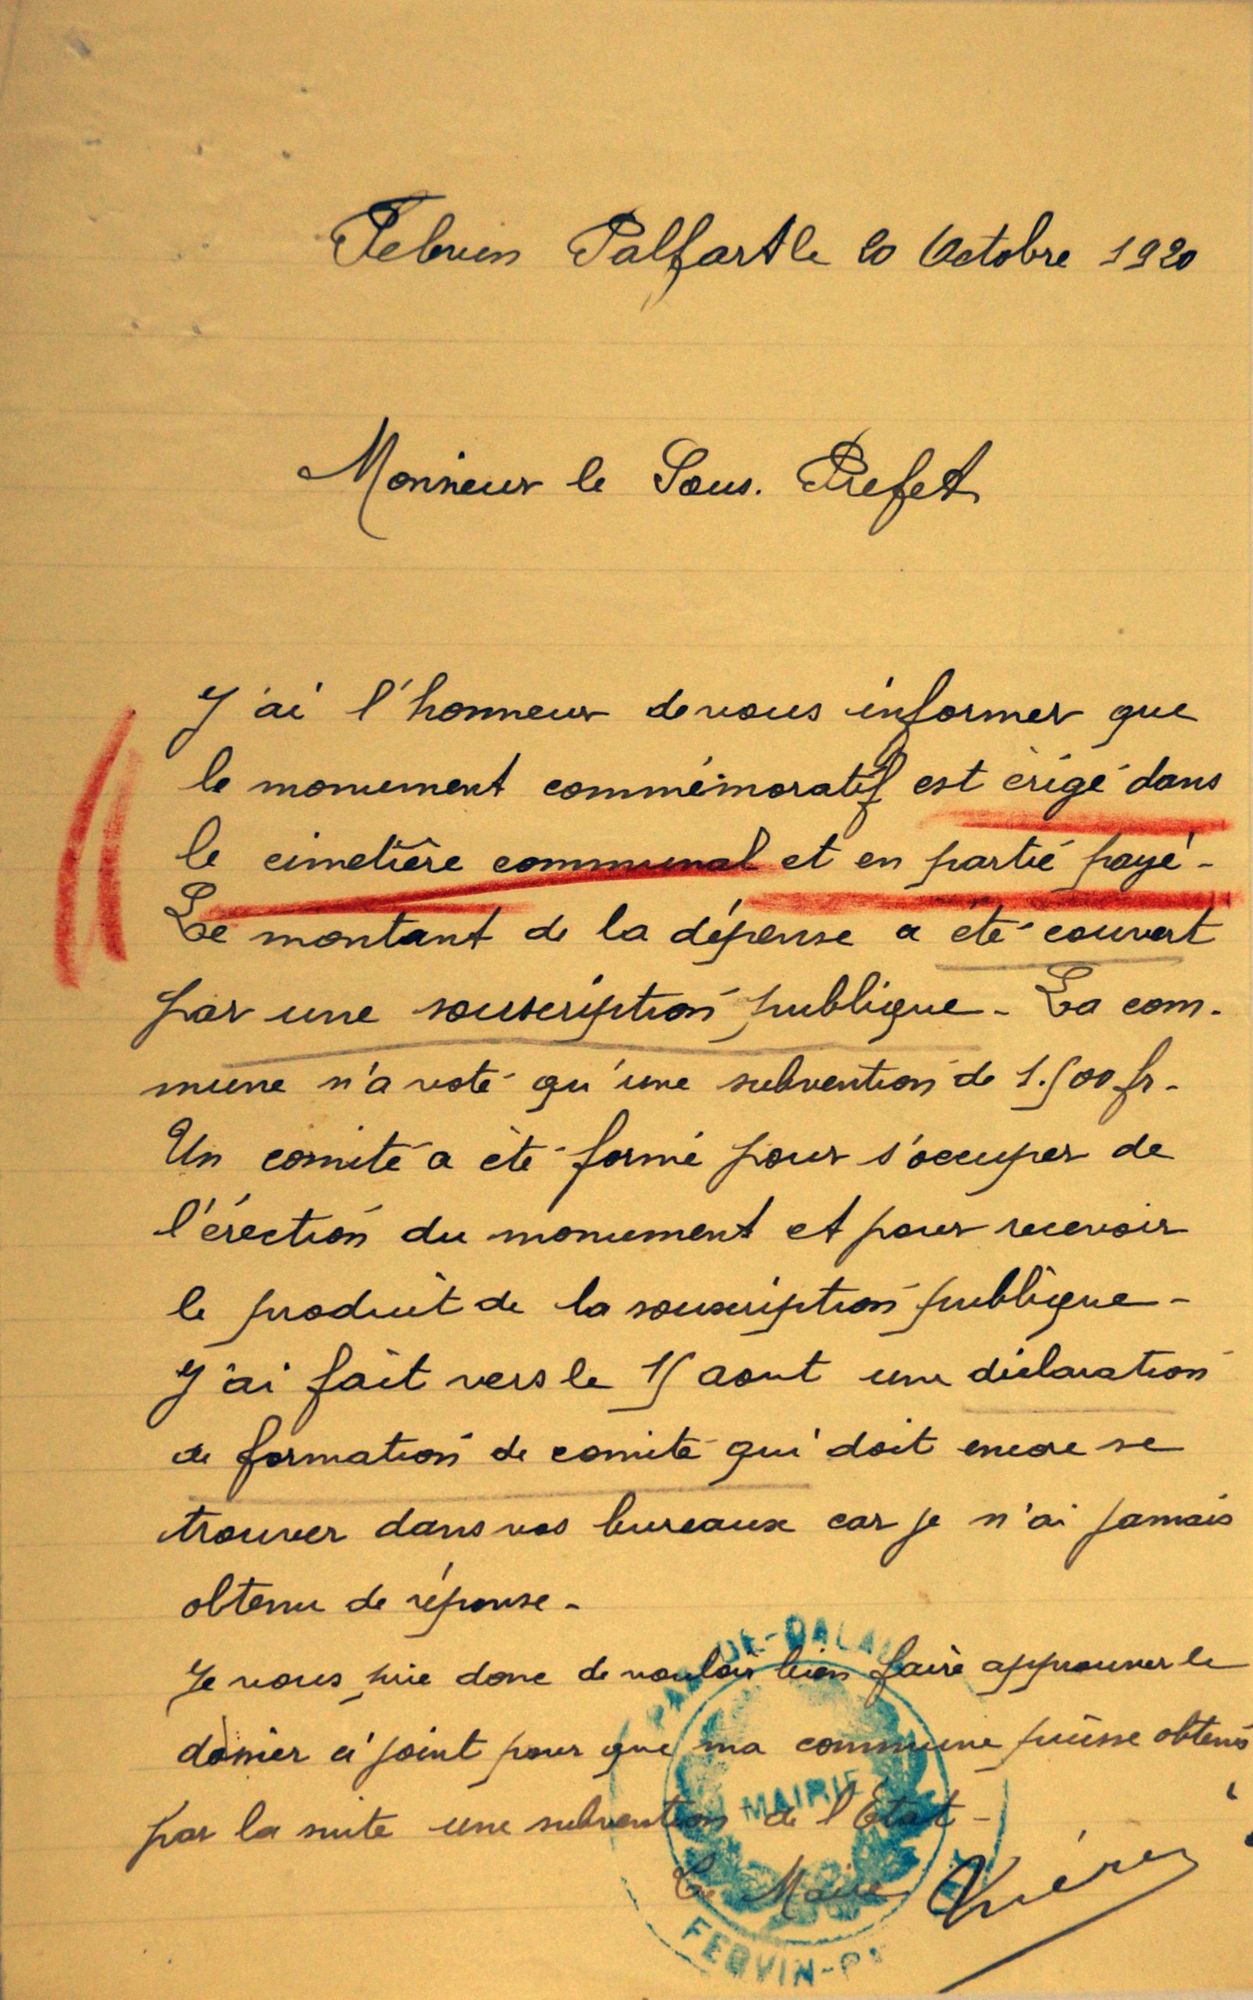 Febvin Palfart le 20 Octobre 1920
Monsieur le Sous. Préfet
J'ai l'honneur de vous informer que
le monument commémoratif est érigé dans
le cimetière communal et en partie payé -
Le montant de la dépense a été couvert
par une souscription publique - La com-
mune n'a voté qu'une subvention de 1.500 fr -
Un comité a été formé pour s'occuper de
l'érection du monument et pour recevoir
le produit de la souscription publique -
J'ai fait vers le 15 aout une déclaration
de formation de comité qui doit encore se
trouver dans vos bureaux car je n'ai jamais
obtenu de réponse -
Je vous prie donc de vouloir bien faire approuver le
dossier ci joint pour que ma commune puisse obtenir
par la suite une subvention de l'Etat -
Le Maire
MAIRIE
FEBVIN-P